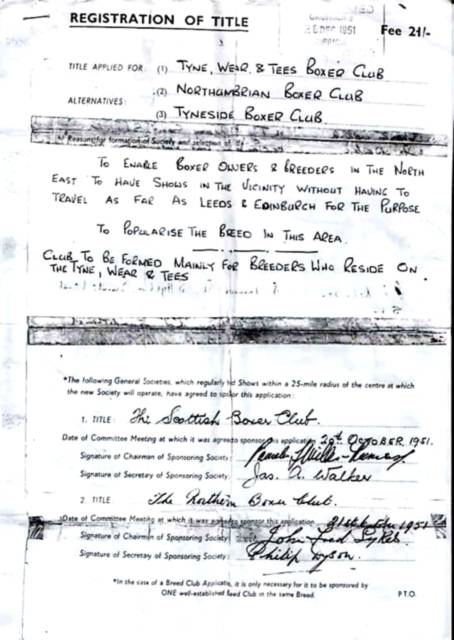 REGISTRATION OF TITLE
DEC 1951
Fee 21/-
TITLE APPLIED FOR: (1) TYNE, WEAR, & TEES BOXER CLUB
ALTERNATIVES: (2) NORTHUMBRIAN BOXER CLUB
(3) TYNESIDE BOXER CLUB.
Reasons for formation of Society and selection of
TO ENABLE BOXER OWNERS & BREEDERS IN THE NORTH
EAST TO HAVE SHOWS IN THE VICINITY WITHOUT HAVING TO
TRAVEL AS FAR AS LEEDS & EDINBURGH FOR THE PURPOSE
TO POPULARISE THE BREED IN THIS AREA.
CLUB TO BE FORMED MAINLY FOR BREEDERS WHO RESIDE ON
THE TYNE, WEAR & TEES
*The following General Societies, which regularly Shows within a 25-mile radius of the centre at which
the new Society will operate, have agreed to this application:
1. TITLE: The Scottish Boxer Club.
Date of Committee Meeting at which it was agreed to sponsor this application 20th OCTOBER 1951.
Signature of Chairman of Sponsoring Society:
Signature of Secretary of Sponsoring Society: Jas. A. Walker
2. TITLE The Northern Boxer Club.
*Date of Committee Meeting at which it was agreed to sponsor this application 1951
Signature of Chairman of Sponsoring Society: John Sykes
Signature of Secretary of Sponsoring Society: Philip Dyson.
*In the case of a Breed Club it is only necessary for it to be sponsored by
ONE well-established Club in the same Breed.
P.T.O.